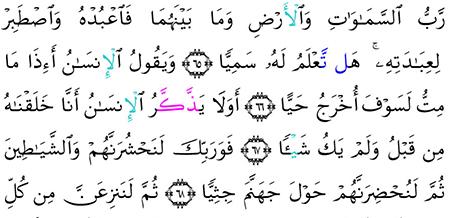 رَّبُّ ٱلسَّمَـٰوَٰتِ وَٱلْأَرْضِ وَمَا بَيْنَهُمَا فَٱعْبُدْهُ وَٱصْطَبِرْ
لِعِبَـٰدَتِهِۦۚ هَل تَّعْلَمُ لَهُۥ سَمِيًّا ٦٥ وَيَقُولُ ٱلْإِنسَـٰنُ أَءِذَا مَا
مِتُّ لَسَوْفَ أُخْرَجُ حَيًّا ٦٦ أَوَلَا يَذَّكَّرُ ٱلْإِنسَـٰنُ أَنَّا خَلَقْنَـٰهُ
مِن قَبْلُ وَلَمْ يَكُ شَيْـًٔا ٦٧ فَوَرَبِّكَ لَنَحْشُرَنَّهُمْ وَٱلشَّيَـٰطِينَ
ثُمَّ لَنُحْضِرَنَّهُمْ حَوْلَ جَهَنَّمَ جِثِيًّا ٦٨ ثُمَّ لَنَنزِعَنَّ مِن كُلِّ